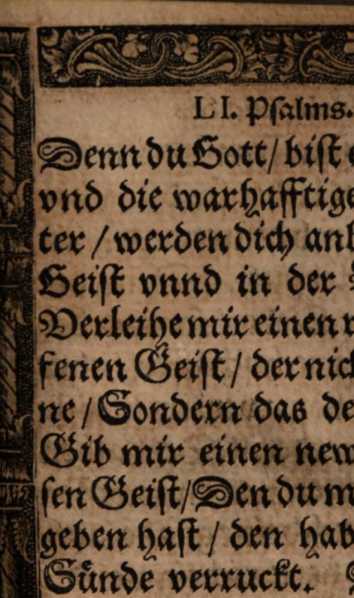 LI. Pſalms.
Denn du Gott / biſt
vnd die warhafftige
ter / werden dich
Geiſt vnnd in der
Verleihe mir einen
fenen Geiſt / der
ne / Sondern das
Gib mir einen new
ſen Geiſt / Den du
geben haſt / den hab
Sünde verruckt.